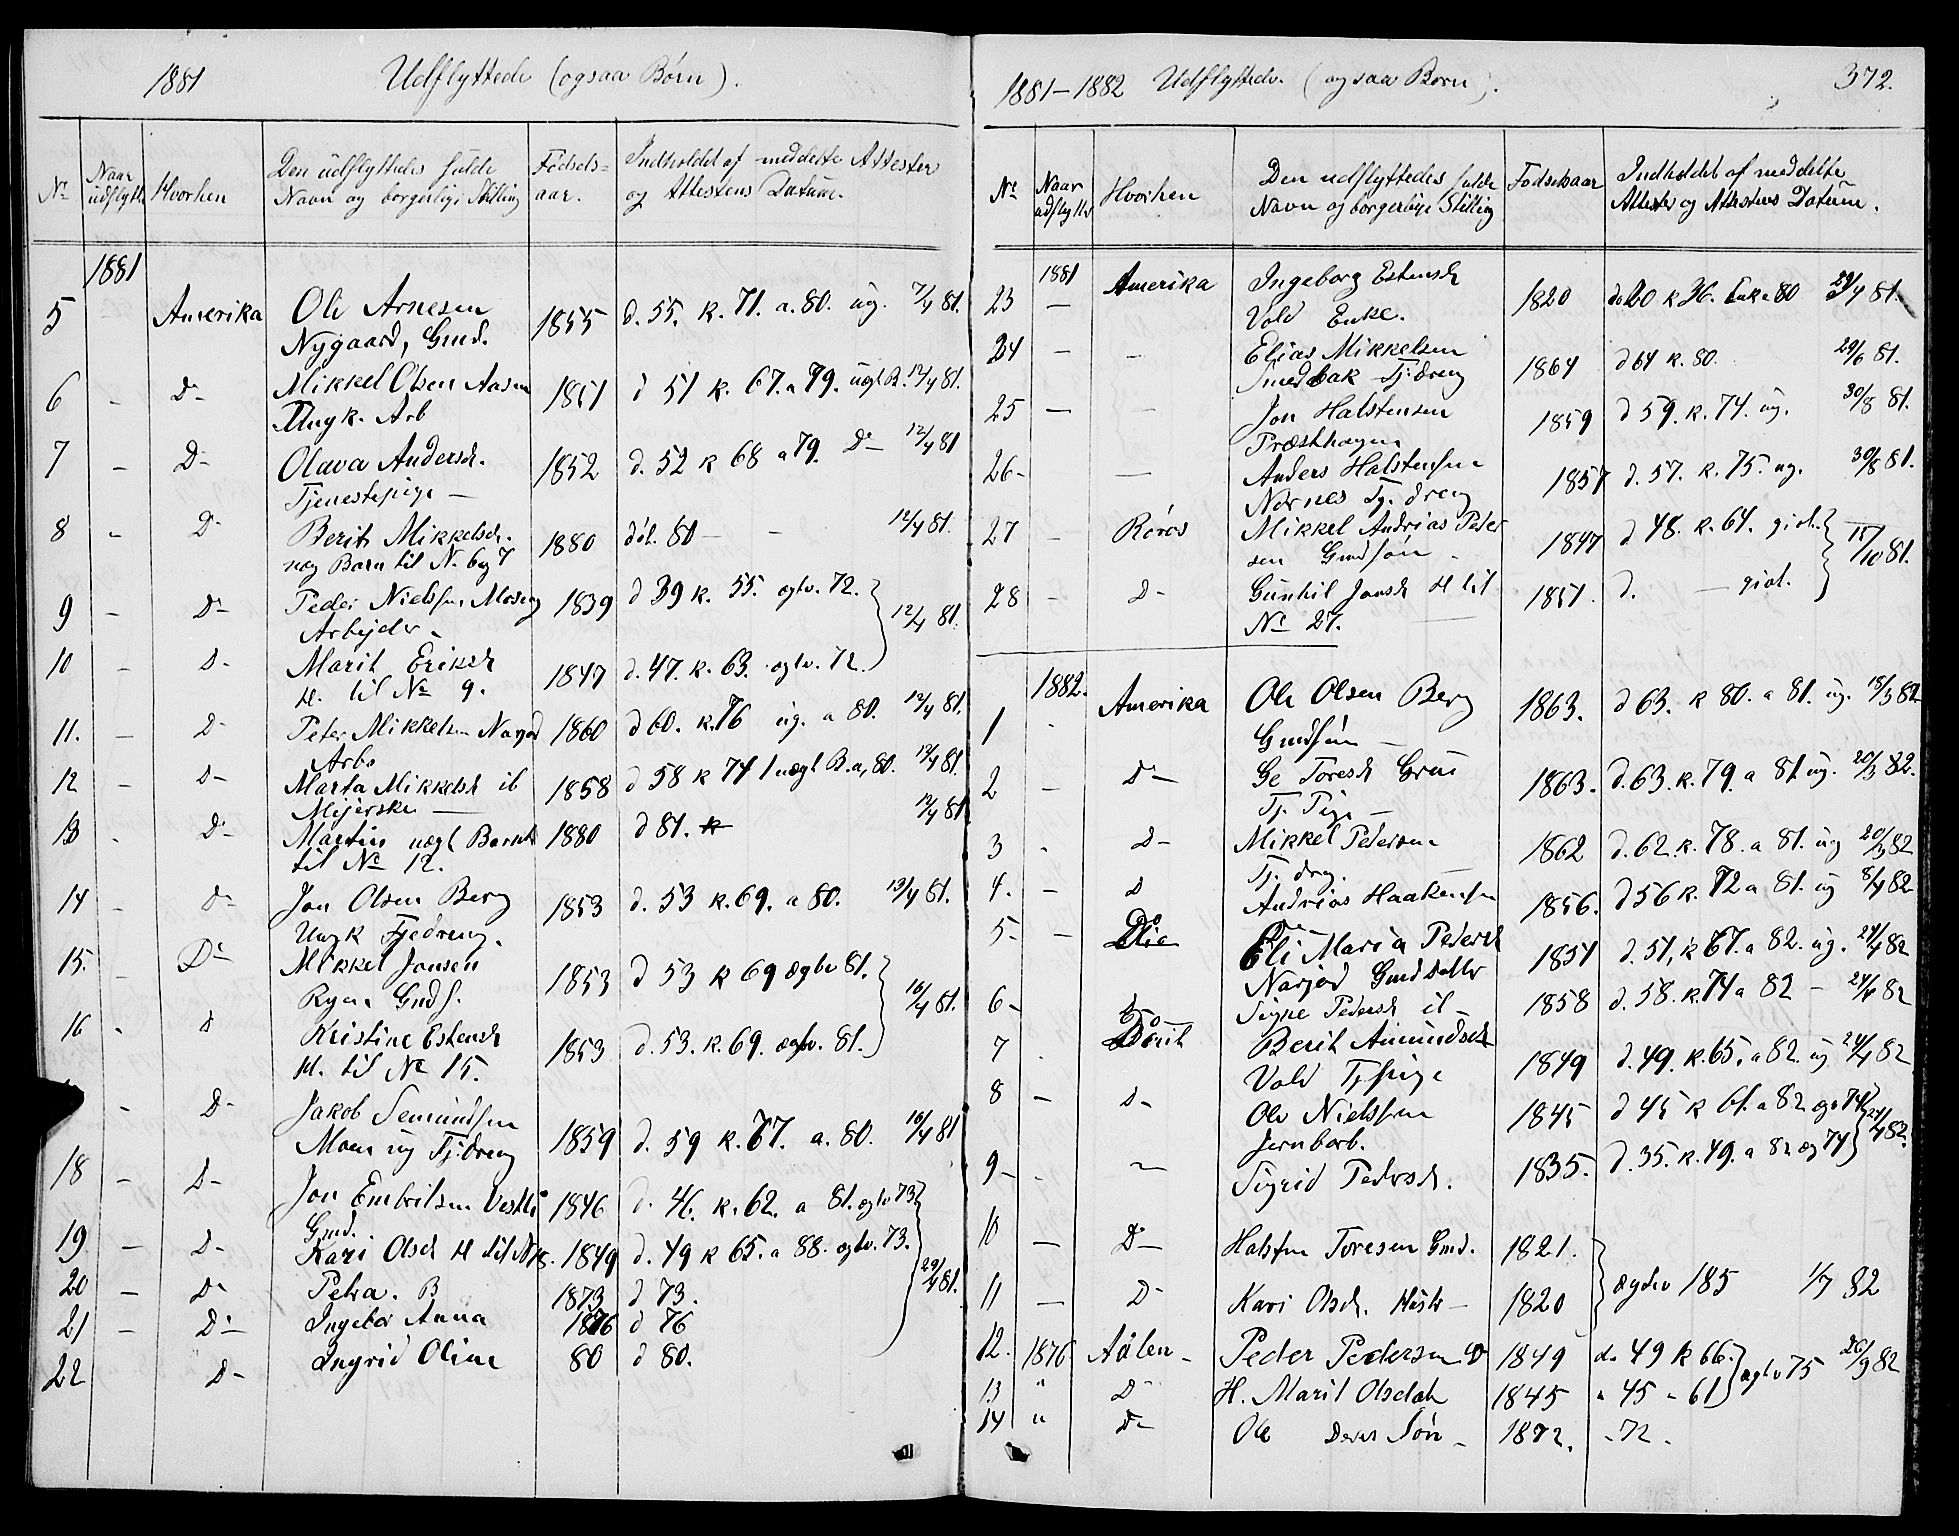 1881 Udflyttede (ogsaa Børn).
No Naar udflytt Hvorhen Den udflyttedes fulde Navn og borgerlige Stilling Fødselsaar. Indholdet af meddelte Attester og Attestens Datum.
1881
5 Amerika Ole Arnesen 1855 d. 55. k. 71. a. 80. ug. 7/4 81.
Nygaard, Gmd.
6 - Do- Mikkel Olsen Aasen 1851 d 51 k. 67. a 79. 12/4 81.
Ungk. Arb
7 - Do- Olava Andersd. 1852 d. 52 k 68 a 79. Do- 12/4 81
Tjenestepige -
8 - Do Berit Mikkelsd. 1880 80 - - 12/4 81.
Barn til No. 6 og 7
9 - Do Peder Nielsen 1839 d 39 k. 55. egtv. 72. 12/4 81.
Arbejder -
10 - D- Marit Eriksd 1847 d. 47. k. 63. egtv. 72.
H. til No 9.
11. - D- Peter Mikkelsen 1860 d 60. k. 76 ug. a 80. 12/4 81.
Arb.
12 - D- Marta Mikkelsd 1858 d 58 k 74 B. a. 80. 12/4 81.
Mejerske -
13 - Do- Martin uægt Barn 1880 d 81. 12/4 81
til No 12.
14 - Do Jon Olsen Berg 1853 d. 53 k. 69. a 80. 13/4 81.
Ungk Tjedreng.
15. - Do Mikkel Jonsen 1853 d 53 k 69 egtv 81. 16/4 81.
Ryen Gmds.
16 - D Kristine Estensd 1853 d. 53. k. 69. egtv. 81.
H. til No 15.
- Do- Jakob 1859 d. 59 k. 77. a. 80. 16/4 81
Moen ug Tj.dreng
18 - D- Jon 1846 d. 46. k. 62. a 81. egtv 73
Gmd.
19 - D- Kari Olsd H til 1849 d. 49 k 65. a 88. egtv. 73.
20 - Do Petra. B 1873 d 73. 29/4 81.
21 - D- Ingebor Anna 1876 d 76
22 D- Ingrid Oline 80 d 80.
1881-1882 Udflyttede. (ogsaa Børn). 372.
No Naar udflytte Hvorhen Den udflyttedes fulde Navn og borgerlige Stilling Fødselsaar Indholdet af meddelte Attester og Attestens Datum.
1881
23 - Amerika Ingeborg Estensd 1820 k 36. 81.
Vold Enke.
24 - - Elias Mikkelsen 1864 d 64 k. 80. 29/6 81.
Smedbak Tj.dreng
25 - - Jon Halstensen 1859 d 59. k. 74. ug. 30/8 81.
Præsthagen
26- - Anders Halstensen 1857 d. 57. k. 75. ug. 30/8 81.
Nornes Tj. dreng
27 - Røros Mikkel Andrias Peder 1847 d 48. k. 64. givt. 15/10 81.
sen Gmdsøn -
28 - D- Gunhil Jonsd H til 1851. d. - givt.
No 27.
1882.
1 - Amerika Ole Olsen Berg 1863. d 63. k 80. a 81. ug. 18/3 82
Gmdsøn -
2 - Do- Toresd 1863. d. 63. k. 79. a 81 ug. 20/3 82.
Tj. Pige -
3 - D- Mikkel Pedersen 1862 d. 62. k. 78. a 81. ug 20/3 82
Tj. drg.
4. - D Andrias Haakensen 1856. d 56 k. 72 a 81. ug 8/4 82
5- - Do Eli Maria Pedersd 1851 d. 51, k 67. a 82. ug. 24/4 82
Gmd
6- Do Signe Pedersd 1858 d. 58. k. 74 a 82 - 24/4 82
7 . Do Berit Amundsd 1849 d. 49. k. 65. a 82. ug 24/4 82
Vold Tj.pige
8 - D- Ole Nielssen 1845 d 45 k 61. a 82 74 24/4 82.
Jernbarb.
9- - Sigrid Pedersd. 1835. d. 35. k. 49. a 82 74
10 - D- Halsten Toresen Gmd. 1821. 185 1/7 82
11 - D- Kari Olsd. - 1820
12. 1876 Aalen - Peder Pedersen 1849 d. 49 k 66. egtv 75 26/9 82
13 " D- H. Marit Olsdah 1845 " 45 " 61
14 " Do- Ole Deres Søn - 1872. - 72 -